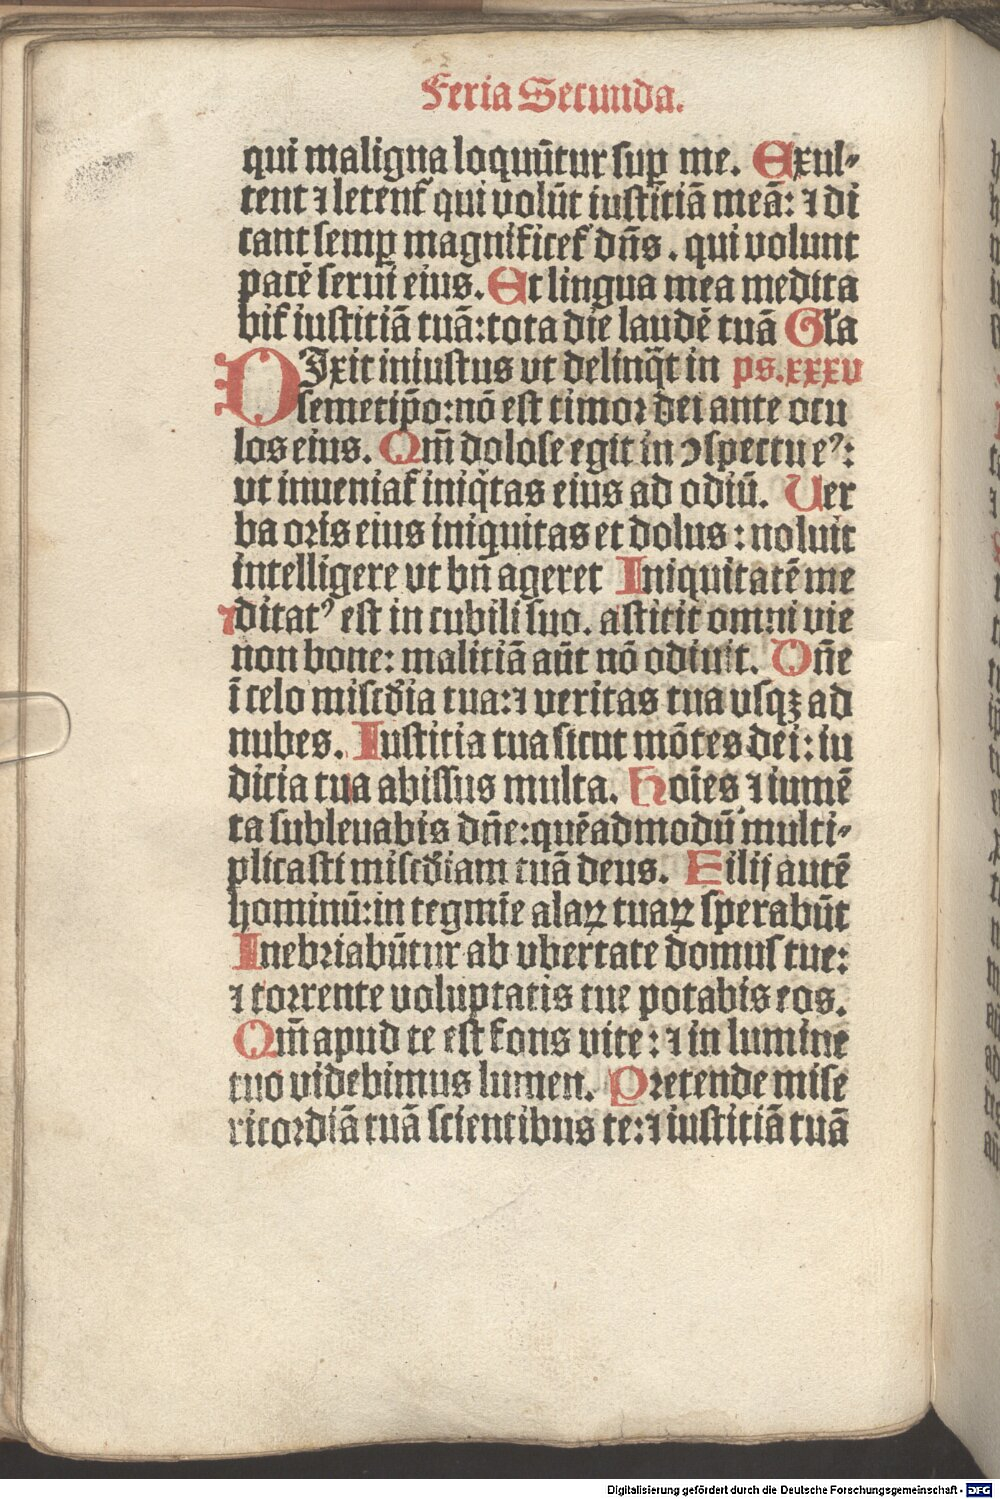 Feria Secunda.
qui maligna loquũtur suꝑ me. Exul⸗
tent ⁊ letentᷣ qui volũt iustitiã meã: ⁊ di
cant semꝑ magnificetᷣ dñs. qui volunt
pacẽ serui eius. Et lingua mea medita
bitᷣ iustitiã tuã: tota die laudẽ tuã Gl̃a
DIxit iniustus vt delinq̃t in ps.xxxv
semetip̃o: nõ est timoꝛ dei ante ocu
los eius. Qm̃ dolose egit in ꝯspectu eꝰ:
vt inueniatᷣ iniq̃tas eius ad odiũ. Uer
ba oris eius iniquitas et dolus: noluit
intelligere vt bñ ageret Iniquitatẽ me
ditatꝰ est in cubili suo. astitit omni vie
non bone: malitiã aũt nõ odiuit. Dñe
ĩ celo misc̃dia tua: ⁊ veritas tua vsqꝫ ad
nubes. Iustitia tua sicut mõtes dei: iu
dicia tua abissus multa. Hoĩes ⁊ iumẽ
ta subleuabis dñe: quẽadmodũ multi⸗
plicasti misc̃diam tuã deus. Eilij autẽ
hominũ: in tegmĩe alaꝝ tuaꝝ sperabũt
Inebꝛiabũtur ab vbertate domus tue:
⁊ toꝛrente voluptatis tue potabis eos.
Qm̃ apud te est fons vite: ⁊ in lumine
tuo videbimus lumen. Pꝛetende mise
ricoꝛdiã tuã scientibus te: ⁊ iustitiã tuã
Digitalisierung gefördert durch die Deutsche Forschungsgemeinschaft - DFG